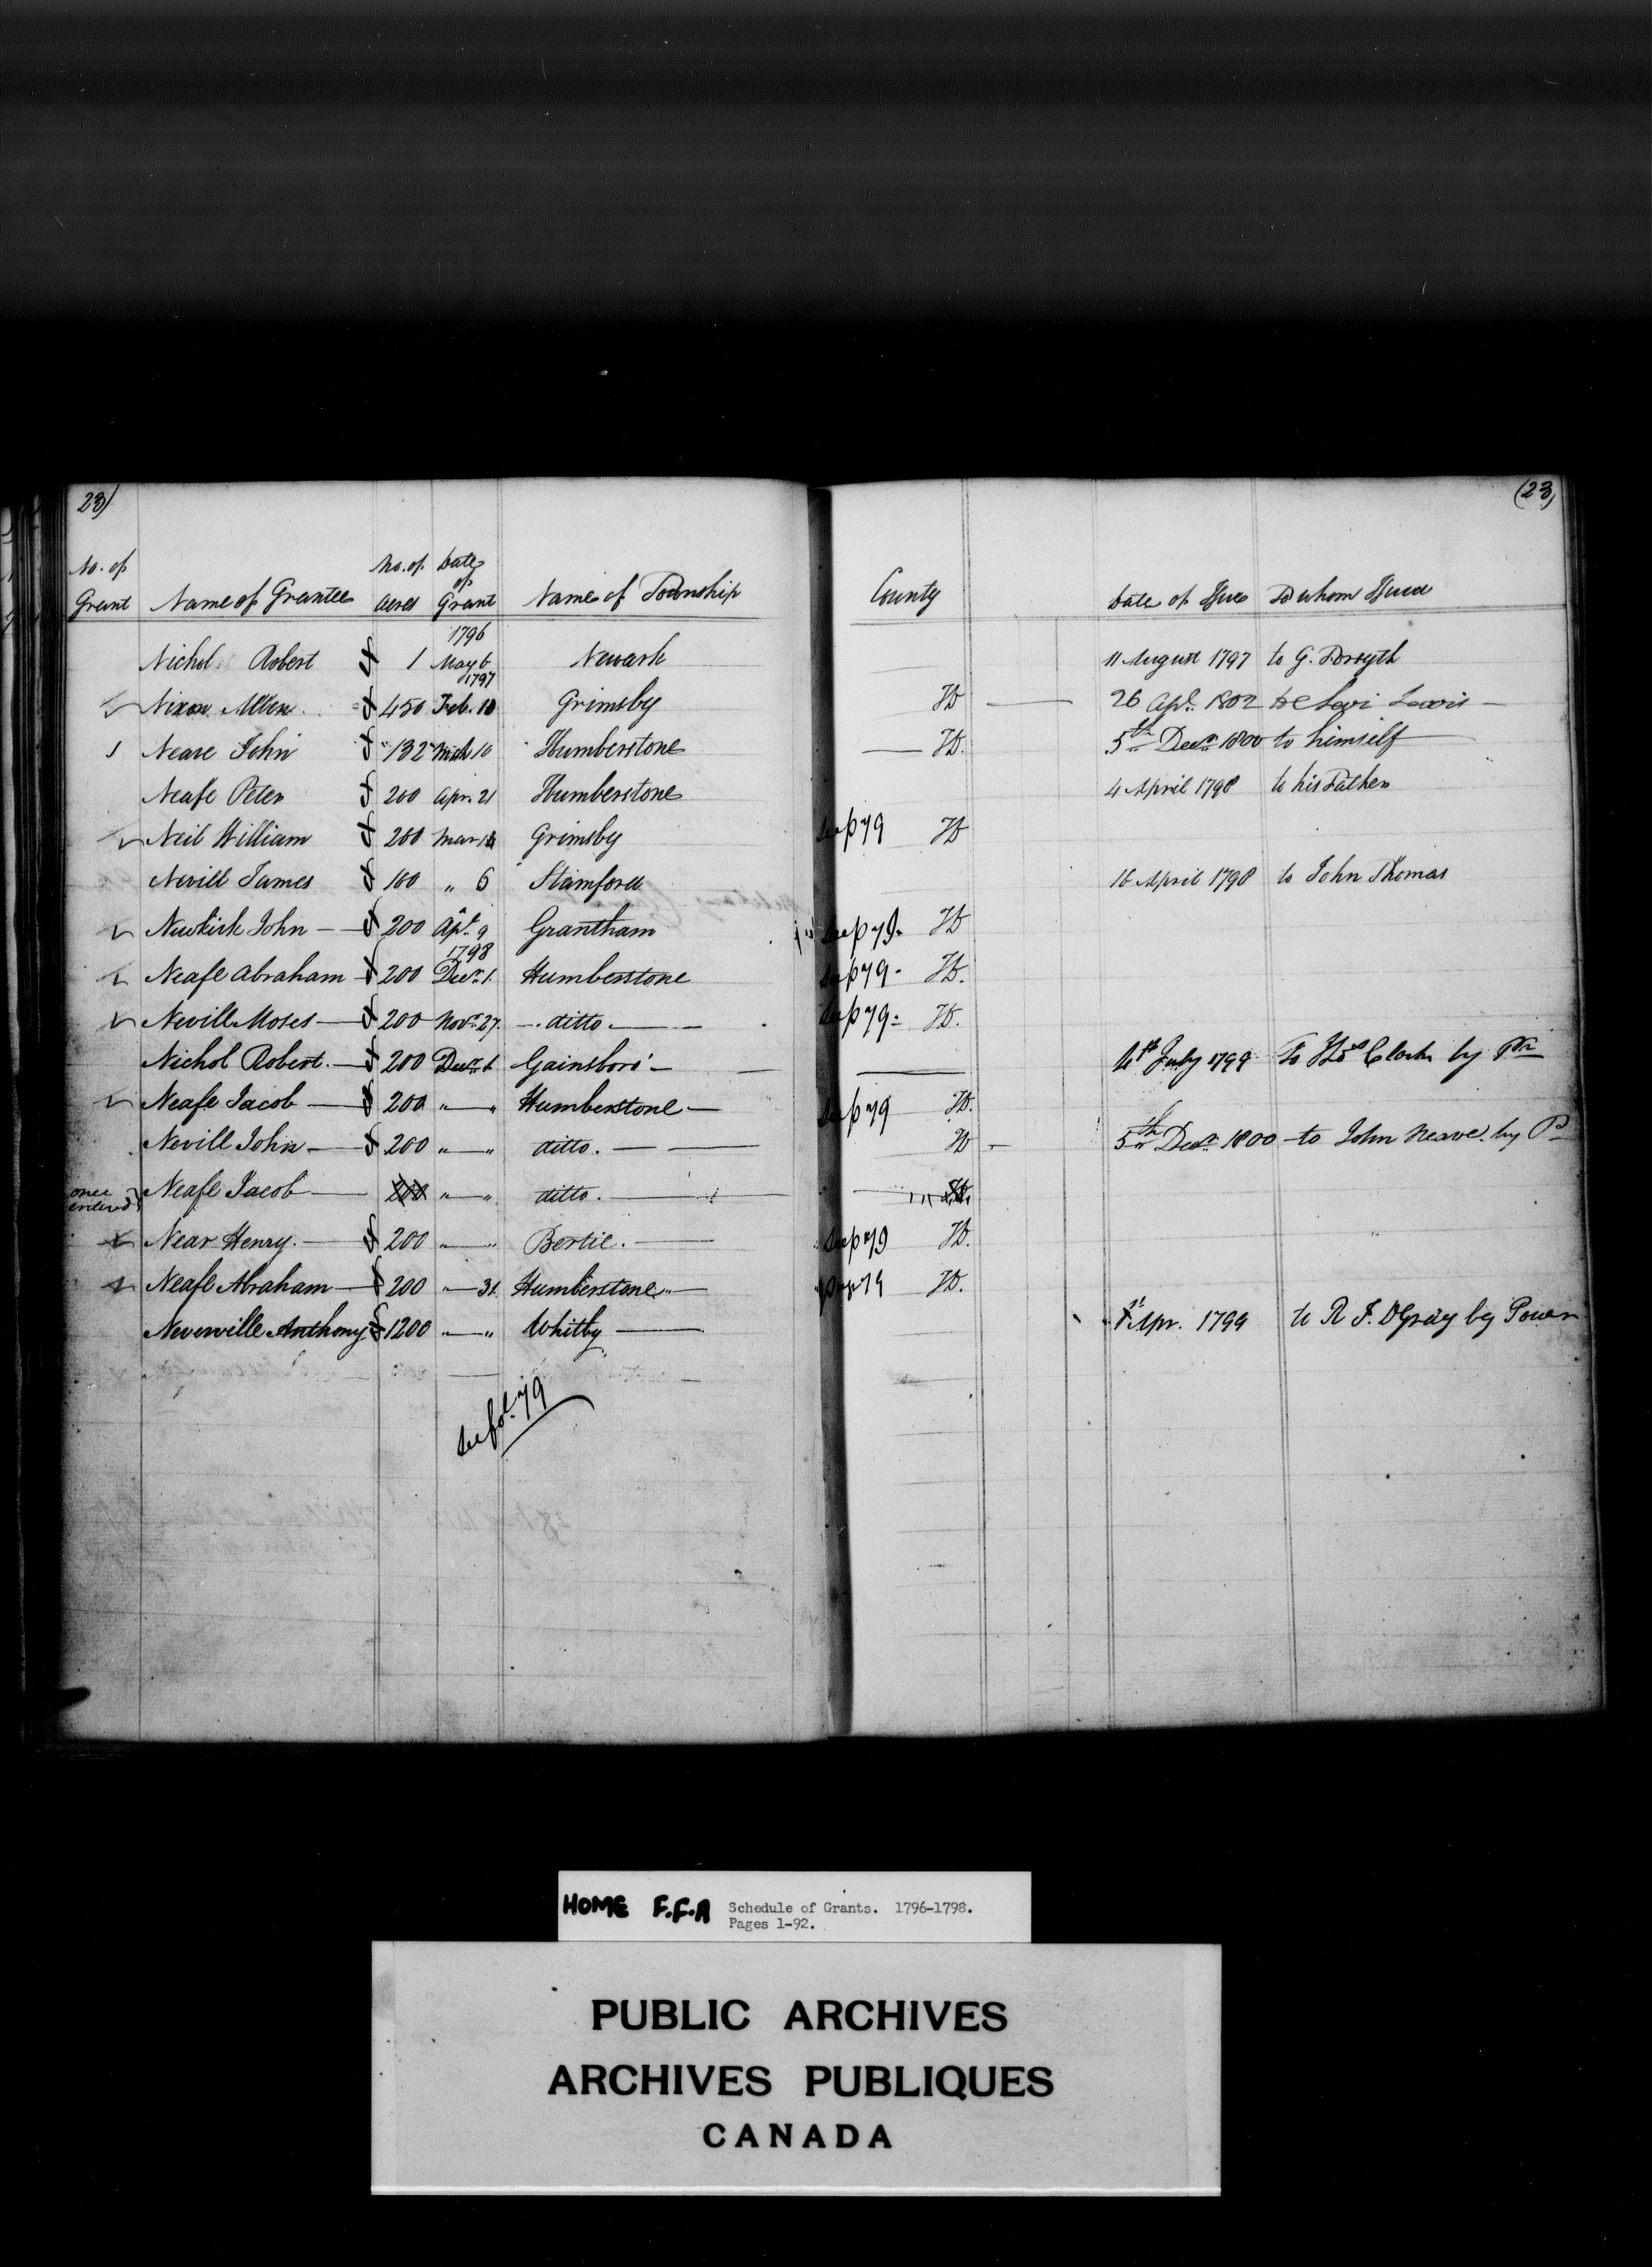 23)
(23)
No. of Grant Name of Grantee No. of Acres Date of Grant Name of Township County Date of Issue To whom Issued
1796
Nichol Robert 1 May 6 Newark 11 August 1797 to G. Forsyth
1797
Nixon Allen 450 Feb. 10 Grimsby HD 26 Apl. 1802 to Levi Lewis
1 Neare John 132 Mch 10 Humberstone HD. 5th Decr. 1800 to himself
Neafe Peter 200 Apr. 21 Humberstone 4 April 1798 to his Father
Neil William 200 Mar Grimsby see p 79 HD
Nevill James 100 " 6 Stamford 16 April 1798 to John Thomas
Newkirk John 200 Apl. 9 Grantham see p 79. HD
1798
Neafe Abraham 200 Decr. 1. Humberstone see p 79. HD.
Nevill Moses 200 Novr. 27. ditto see p 79. HD.
Nichol Robert. 200 Decr. 1 Gainsboro' July 1799 To Thos Clark by Pr
Neafe Jacob 200 " " Humberstone see p 79 HD.
Nevill John 200 " " ditto. HD 5th Decr. 1800 to John Neave by P
once entered Neafe Jacob 200 " " ditto. HD.
Near Henry. 200 " " Bertie. see p 79 HD.
Neafe Abraham 200 " 31 Humberstone see p 79 HD.
Neverville Anthony 1200 " " Whitby 1st Apr. 1799 to R I. DGray by Power
see fol. 79
HOME F.F.A Schedule of Grants. 1796-1798.
Pages 1-92.
PUBLIC ARCHIVES
ARCHIVES PUBLIQUES
CANADA